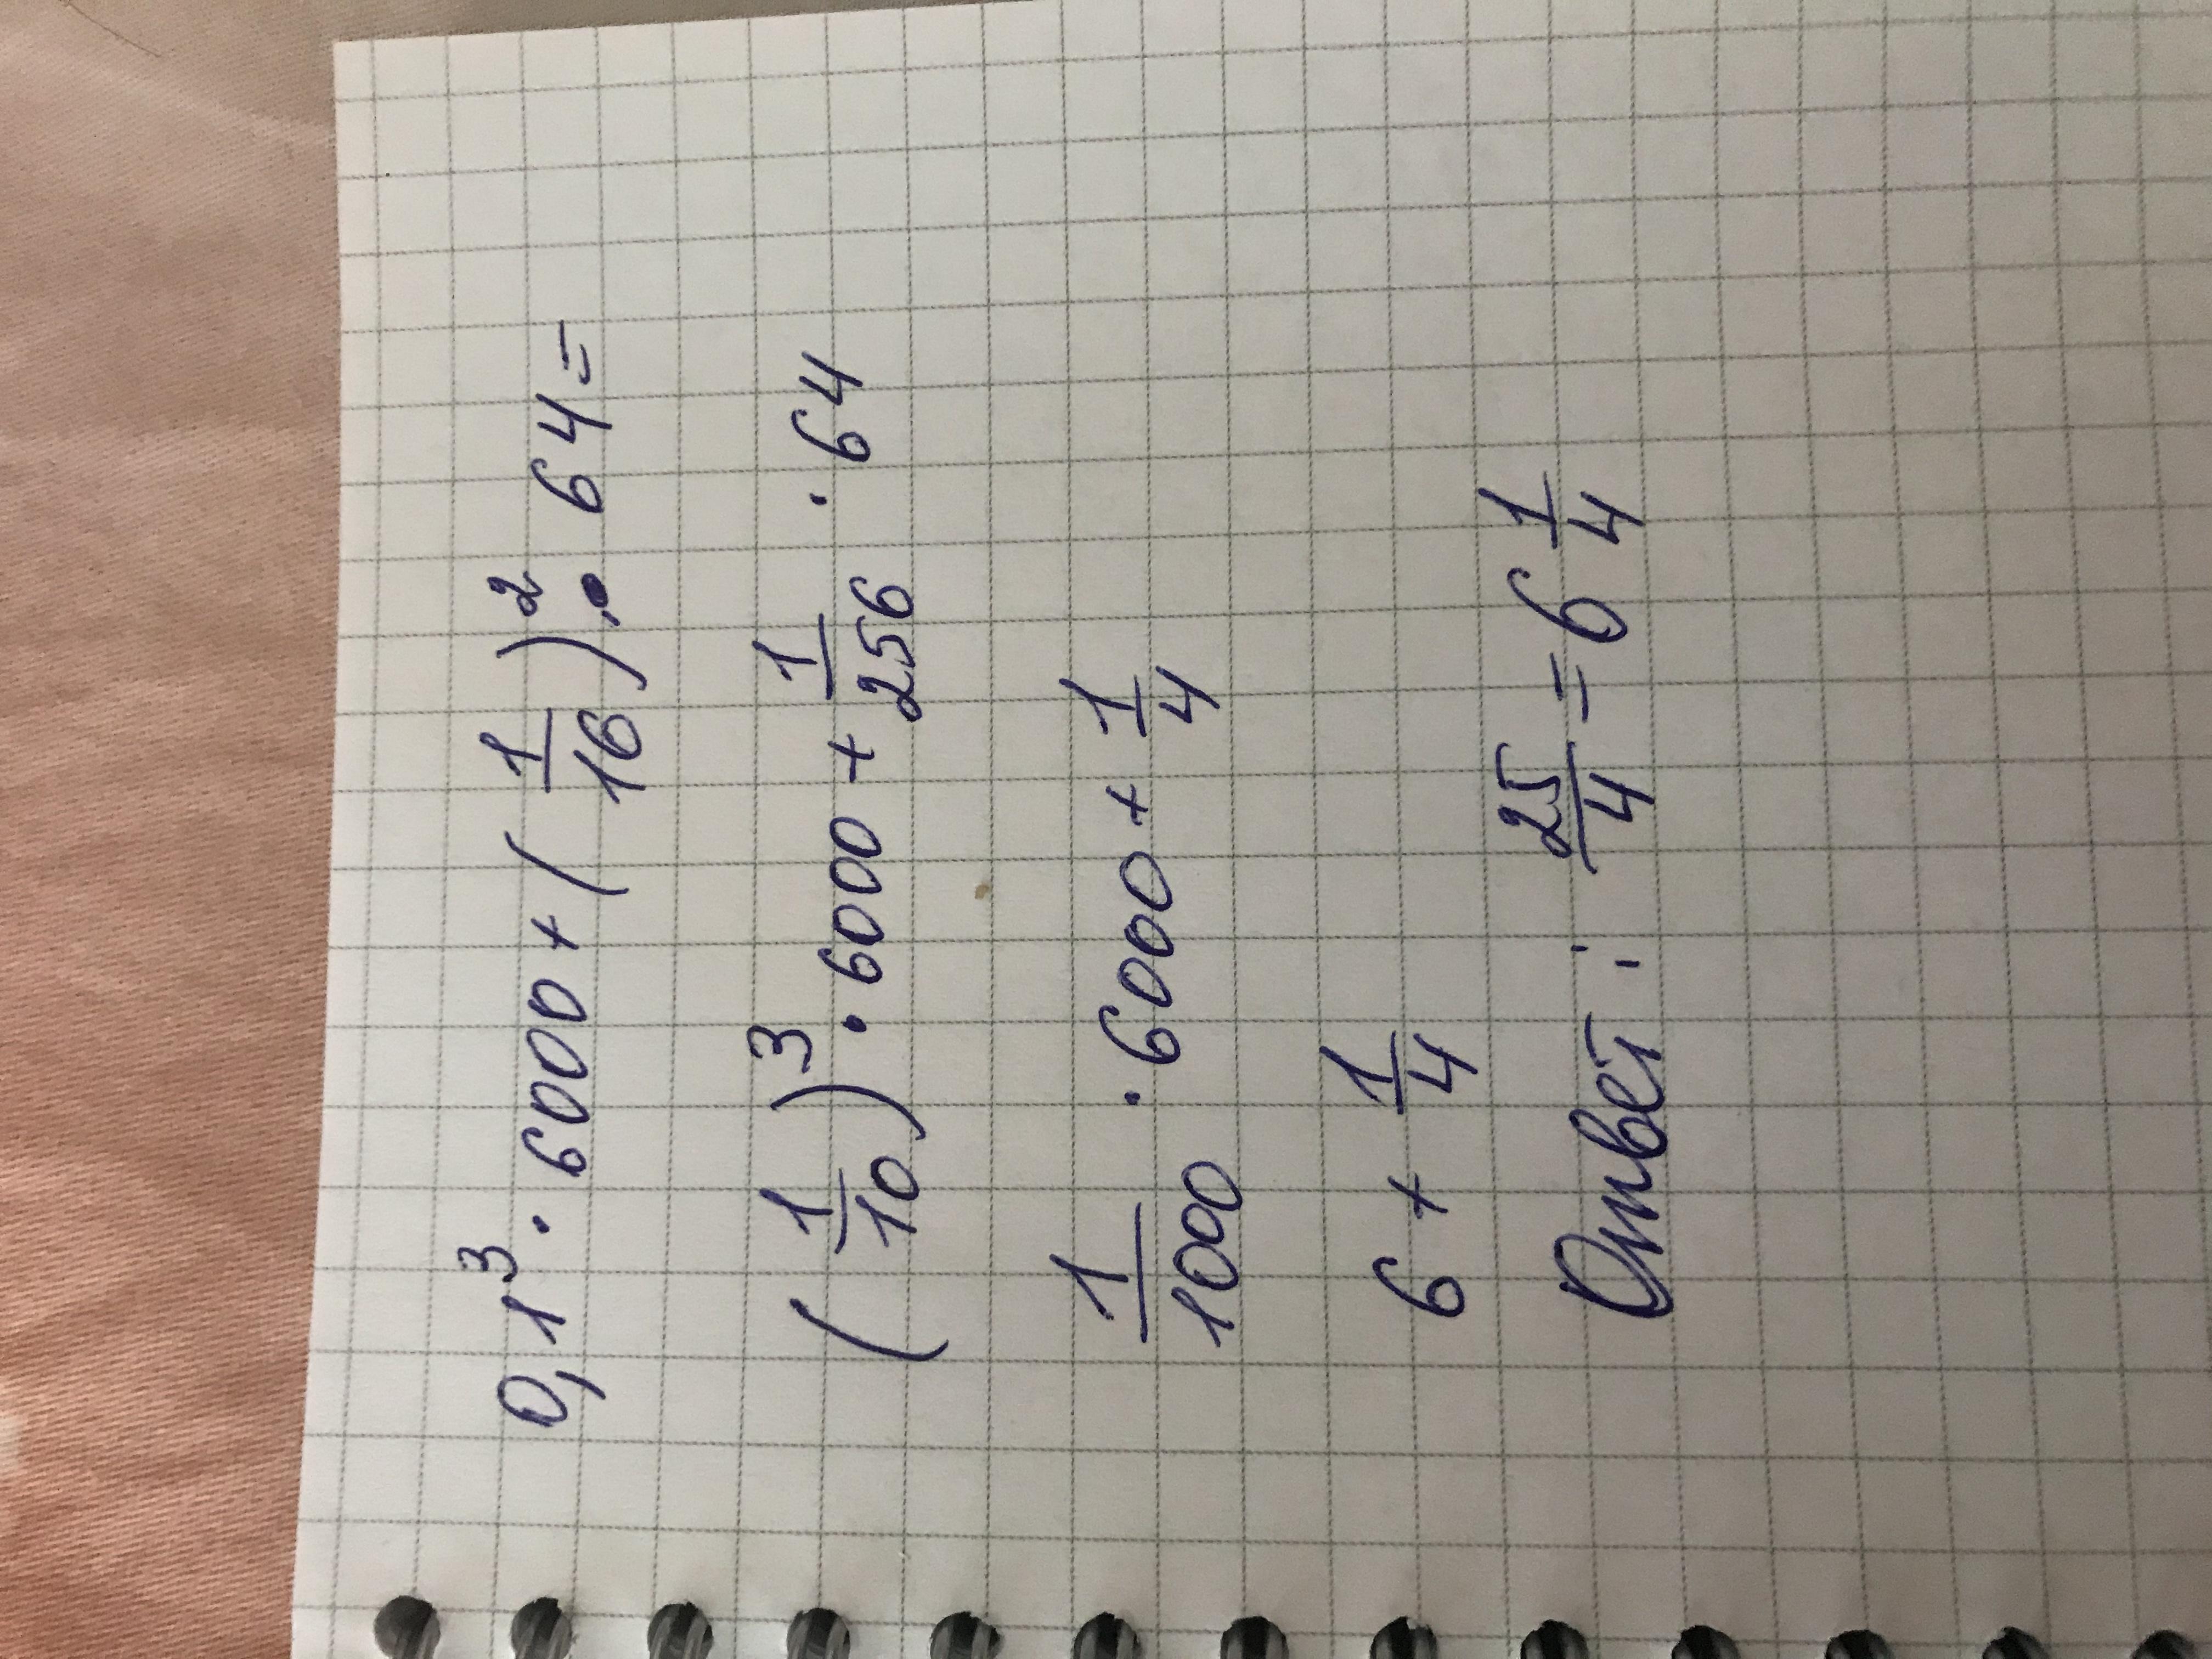 0,1³ · 6000 + (1/16)² · 64 =
(1/10)³ · 6000 + 1/256 · 64
1/1000 · 6000 + 1/4
6 + 1/4
Ответ: 25/4 = 6 1/4